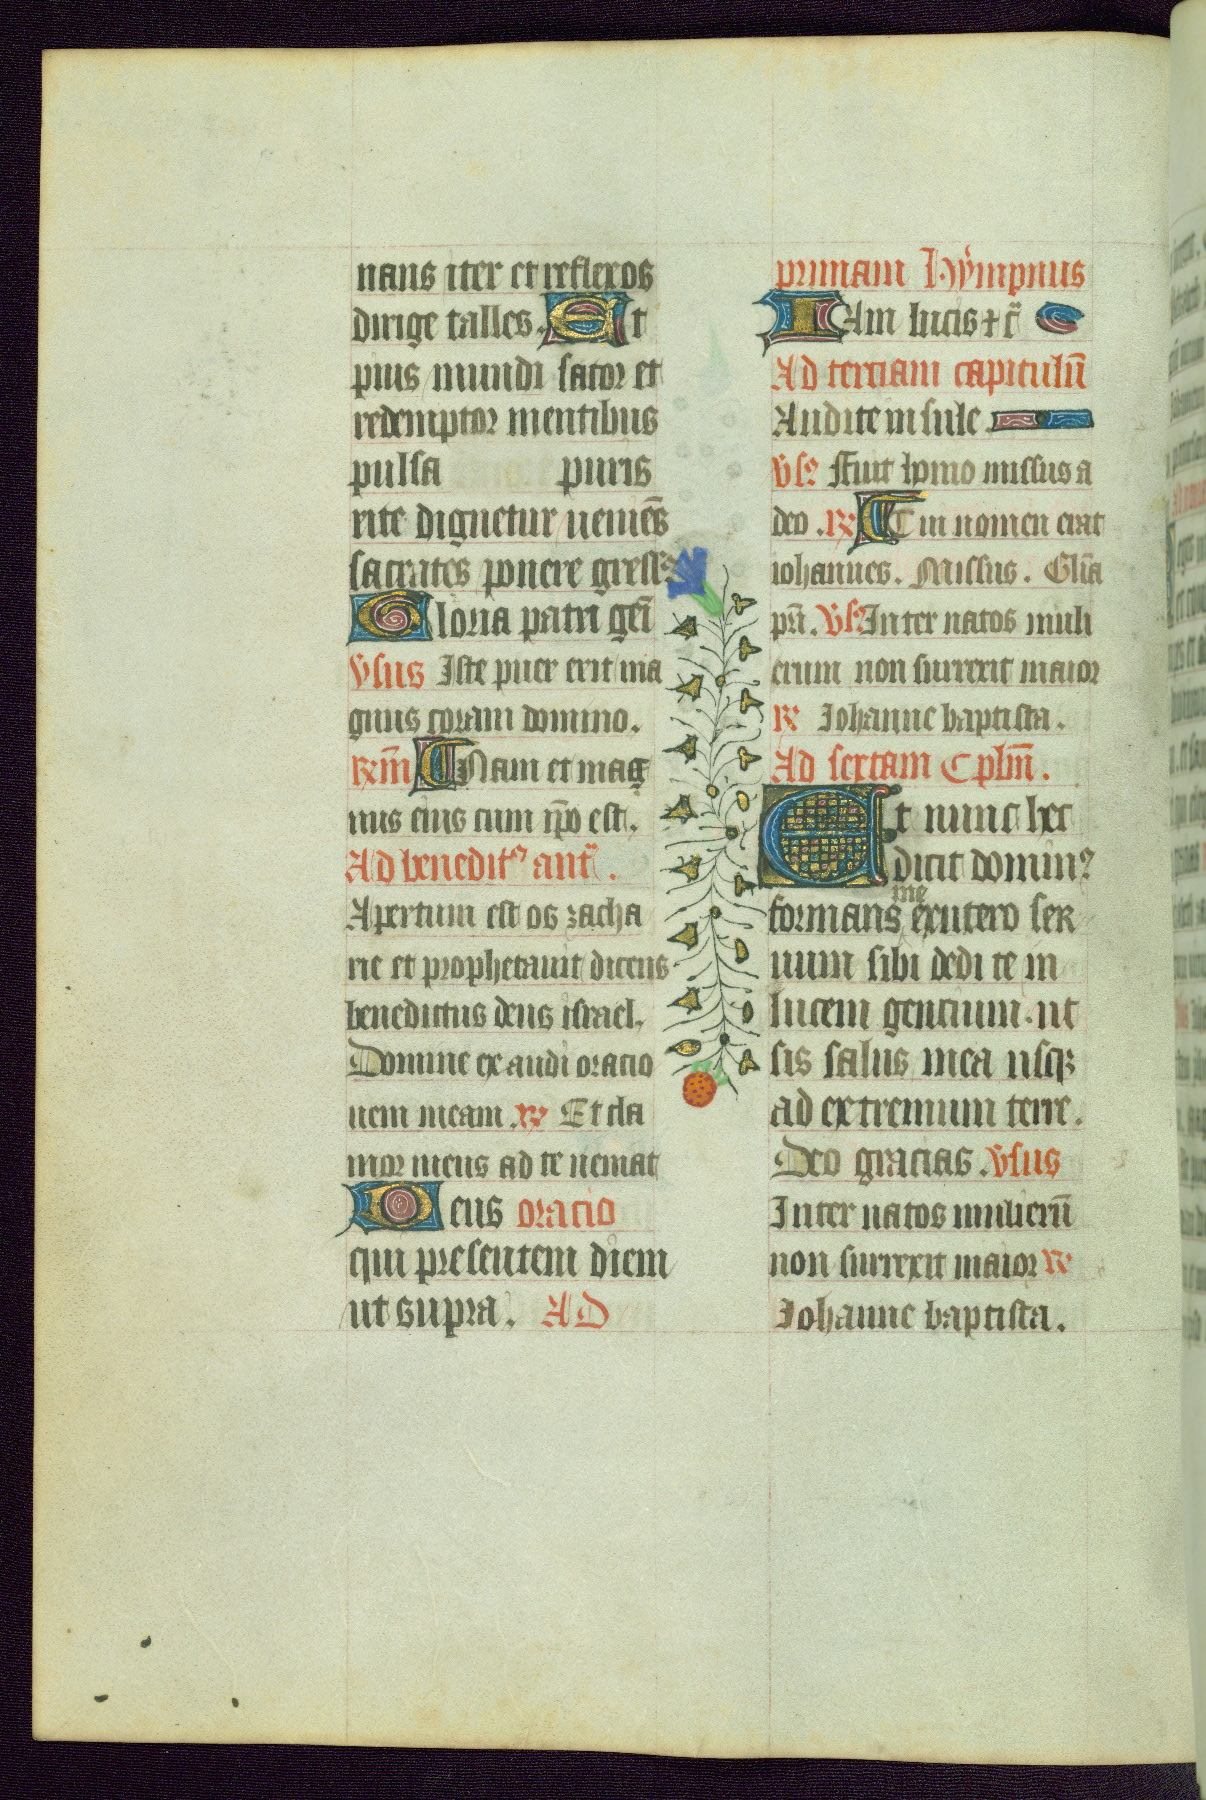 nans iter et reflexos
dirige talles. Et
pius mundi sator et
redemptor mentibus
pulsa puris
rite dignetur veniēs
sacrates ponere gress9
Gloria patri geī
Vsus Iste puer erit ma
gnus coram domino.
Rxm̄ ETNam et mag
nus eius cum ip̄o est.
Ad benedit9 ant̄.
Apertum est os zacha
rie et prophetauit dicens
benedictus deus israel.
Domine exaudi oracio
nem meam. Rx Et cla
mor meus ad te ueniat
Deus oracio
qui presentem diem
ut supra. AD
primam Hympnus
IAm lucis ⁊ c̄
Ad terciam capitulū
Audite insule.
Vs9 Fuit homo missus a
deo. Rx ET in nomen erat
iohannes. Missus. Glīa
pr̄i. Vs9 Inter natos muli
erum non surrexit maior
Rx Iohanne baptista.
Ad sextam Cplm̄.
Et nunc hec
dicit domin9
formans me exutero ser
uum sibi dedi te in
lucem gencium. ut
sis salus mea usqꝫ
ad extremum terre.
Deo gracias. Vsus
Inter natos mulierū
non surrexit maior Rx
Iohanne baptista.